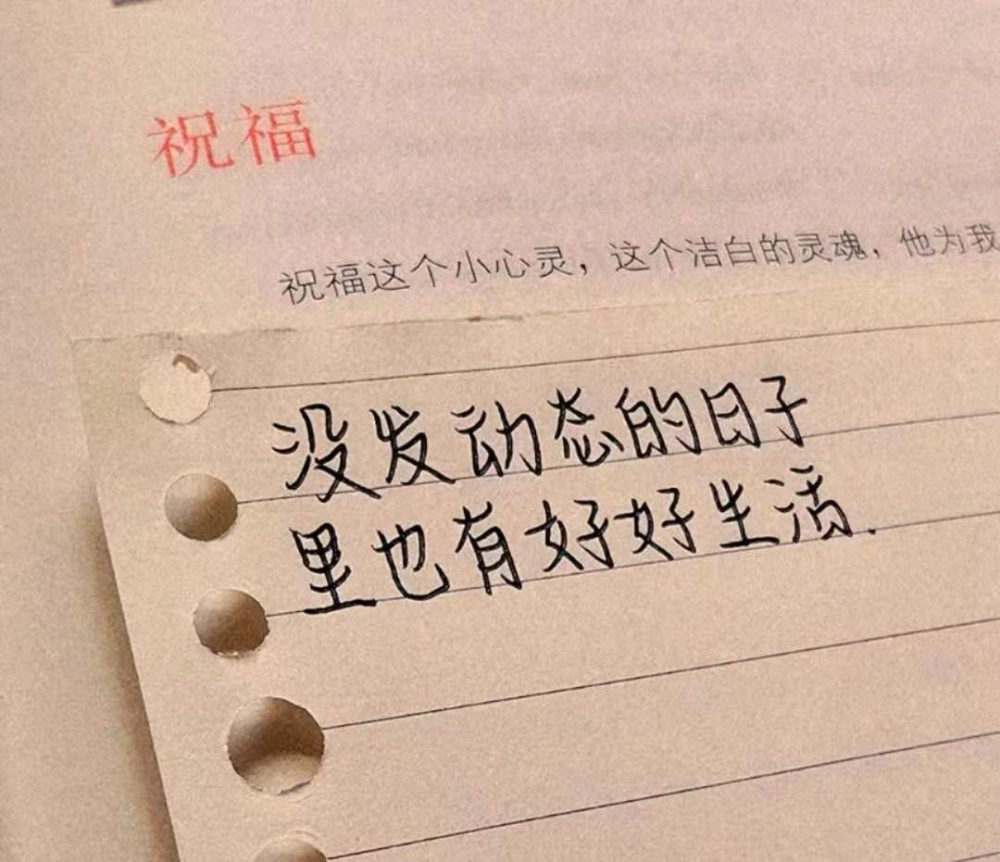 祝福
祝福这个小心灵，这个洁白的灵魂，他为我
没发动态的日子
里也有好好生活.